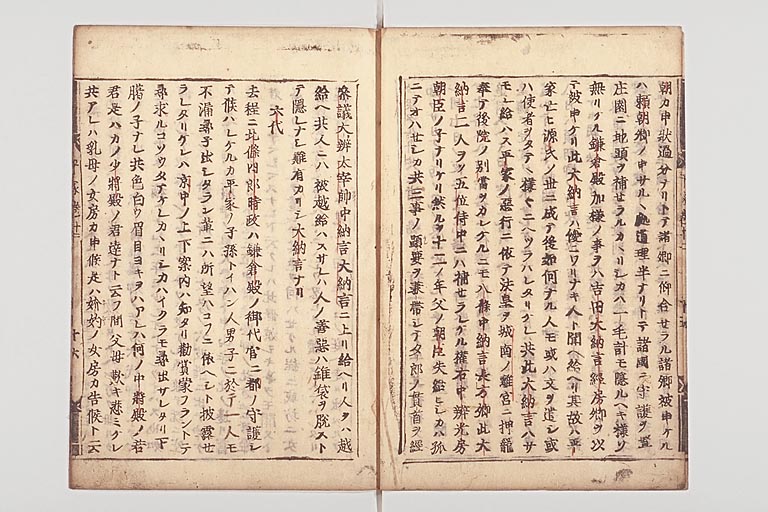 朝カ申状過分ナリトテ諸卿ニ仰合セラル諸卿被申ケル
ハ頼朝卿ノ申サルヽ処道理半ナリトテ諸国ニ守護ヲ置
庄園ニ地頭ヲ補セラルカヽリシカハ一毛計モ隠ルヘキ様ソ
無リケル鎌倉殿加様ノ事ヲハ吉田大納言経房卿ヲ以
テ被申ケリ此大納言ハ優ニワリナキ人ト聞ヘ給ヘリ其故ハ平
家亡ヒ源氏ノ世ニ成テ後如何ナル人モ或ハ文ヲ遣シ或
ハ使者ヲタテ様々ニヘツラハレタリケレ共此大納言ハサ
モシ給ハス平家ノ悪行ニ依テ法皇ヲ城南ノ離宮ニ押籠
奉テ後院ノ別当ヲカレケルニモ八条中納言長方卿此大
納言二人ヲソ五位侍中ニハ補セラレケル権右中辨光房
朝臣ノ子ナリケリ然ルヲ十二ノ年父ノ朝臣失給ヒシカハ孤
ニテオハセシカ共三事ノ顕要ヲ兼帯シテ夕郎ノ貫首ヲ経
参議大辨太宰帥中納言大納言ニ上リ給ヘリ人ヲハ越
給ヘ共人ニハ被越給ハスサレハ人ノ善悪ハ錐袋ヲ脱スト
テ隠レナシ難有カリシ大納言ナリ
六代
去程ニ北條四郎時政ハ鎌倉殿ノ御代官ニ都ノ守護シ
テ候ハレケルカ平家ノ子孫トイハン人男子ニ於テ一人モ
不漏尋子出シタラン輩ニハ所望ハコフニ依ヘシト披露セ
ラレタリケレハ京中ノ上下案内ハ知タリ勧賞蒙フラントテ
尋求ルコソウタテケレカヽリシカハイクラモ尋出サレタリ下
﨟ノ子ナレ共色白ウ眉目ヨキヲハアレハ何ノ中将殿ノ若
君是ハカノ少将殿ノ君達ナト云フ間父母歎キ悲ミケレ
共アレハ乳母ノ女房カ申候是ハ妳妁ノ女房カ告候ト云
十六